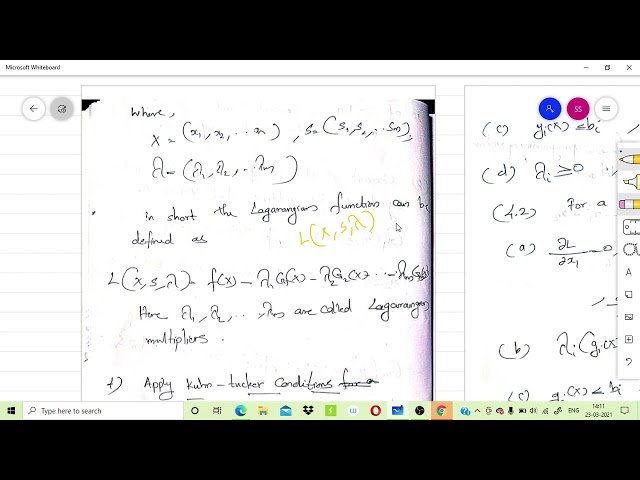 Microsoft Whiteboard
SS
where,
X = (x₁, x₂, ... xₙ), S = (s₁, s₂, ... sₘ),
λ = (λ₁, λ₂, ... λₘ)
in short the Lagarangian function can be
defined as
L(x, s, λ)
L(x, s, λ) = f(x) - λ₁G₁(x) - λ₂G₂(x) ... - λₘ
Here λ₁, λ₂, ..., λₘ are called Lagarangian
multipliers.
f) Apply Kuhn-tucker Conditions for a
(c) gᵢ(x) ≤ bᵢ
(d) λᵢ ≥ 0
(4.2) For a
(a) ∂L/∂x₁ = 0,
(b) λᵢ(gᵢ(x)
(c) gᵢ(x) ≤ bᵢ
Type here to search
ENG
14:11
23-03-2021